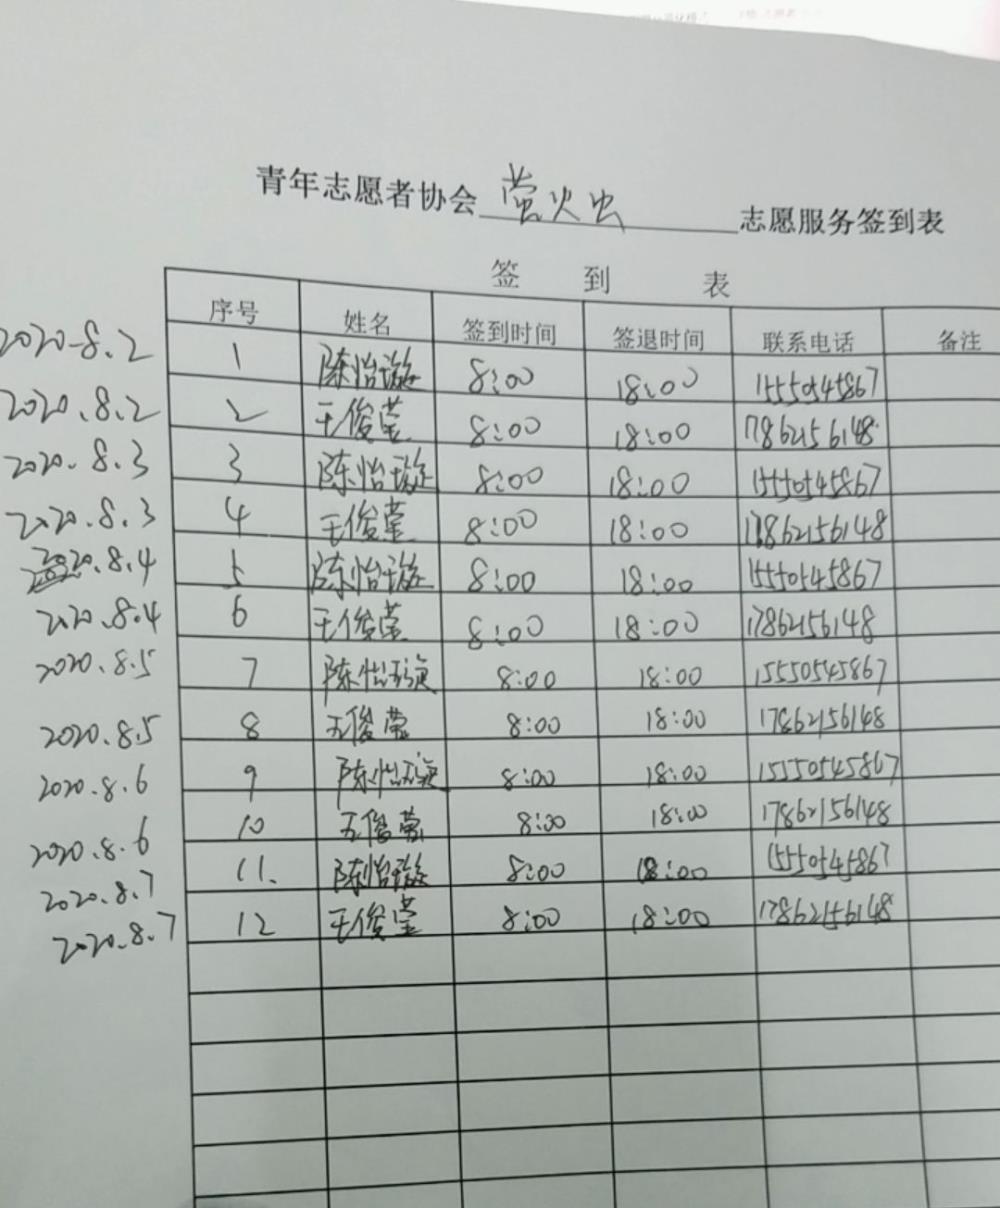 青年志愿者协会 萤火虫 志愿服务签到表
签 到 表
序号 姓名 签到时间 签退时间 联系电话 备注
2020.8.2 1 陈怡璇 8:00 18:00 15550545867
2020.8.2 2 王俊莹 8:00 18:00 17862156148
2020.8.3 3 陈怡璇 8:00 18:00 15550545867
2020.8.3 4 王俊莹 8:00 18:00 17862156148
2020.8.4 5 陈怡璇 8:00 18:00 15550545867
2020.8.4 6 王俊莹 8:00 18:00 17862156148
2020.8.5 7 陈怡璇 8:00 18:00 15550545867
2020.8.5 8 王俊莹 8:00 18:00 17862156148
2020.8.6 9 陈怡璇 8:00 18:00 15550545867
2020.8.6 10 王俊莹 8:00 18:00 17862156148
2020.8.7 11. 陈怡璇 8:00 18:00 15550545867
2020.8.7 12 王俊莹 8:00 18:00 17862156148